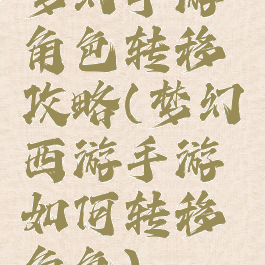 梦幻手游
角色转移
攻略(梦幻
西游手游
如何转移
角色)